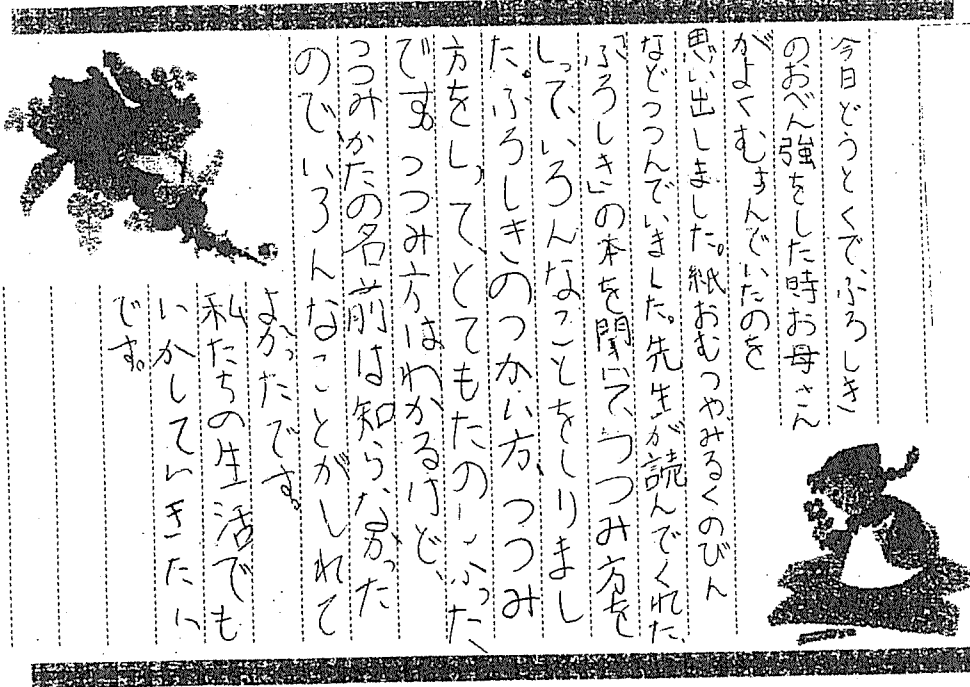 今日どうとくでふろしき
のおべん強をした時お母さん
がよくむすんでいたのを
思い出しました。紙おむつやみるくのびん
などつつんでいました。先生が読んでくれた、
「ふろしき」の本を聞いて、つつみ方を
しって、いろんなことをしりまし
た。ふろしきのつかい方、つつみ
方をしって、とてもたのしかった
です。つつみ方はわかるけど、
つつみかたの名前は知らなかった
ので、いろんなことがしれて
よかったです。
私たちの生活でも
いかしていきたい
です。